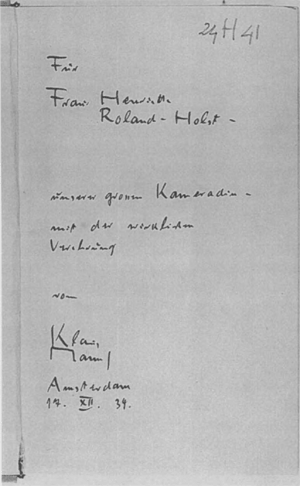 24 H 41
Für
Frau Henriette
Roland-Holst -
unserer grossen Kameradin -
mit der wirklichen
Verehrung
von
Klaus
Mann
Amsterdam
17. XII. 34.